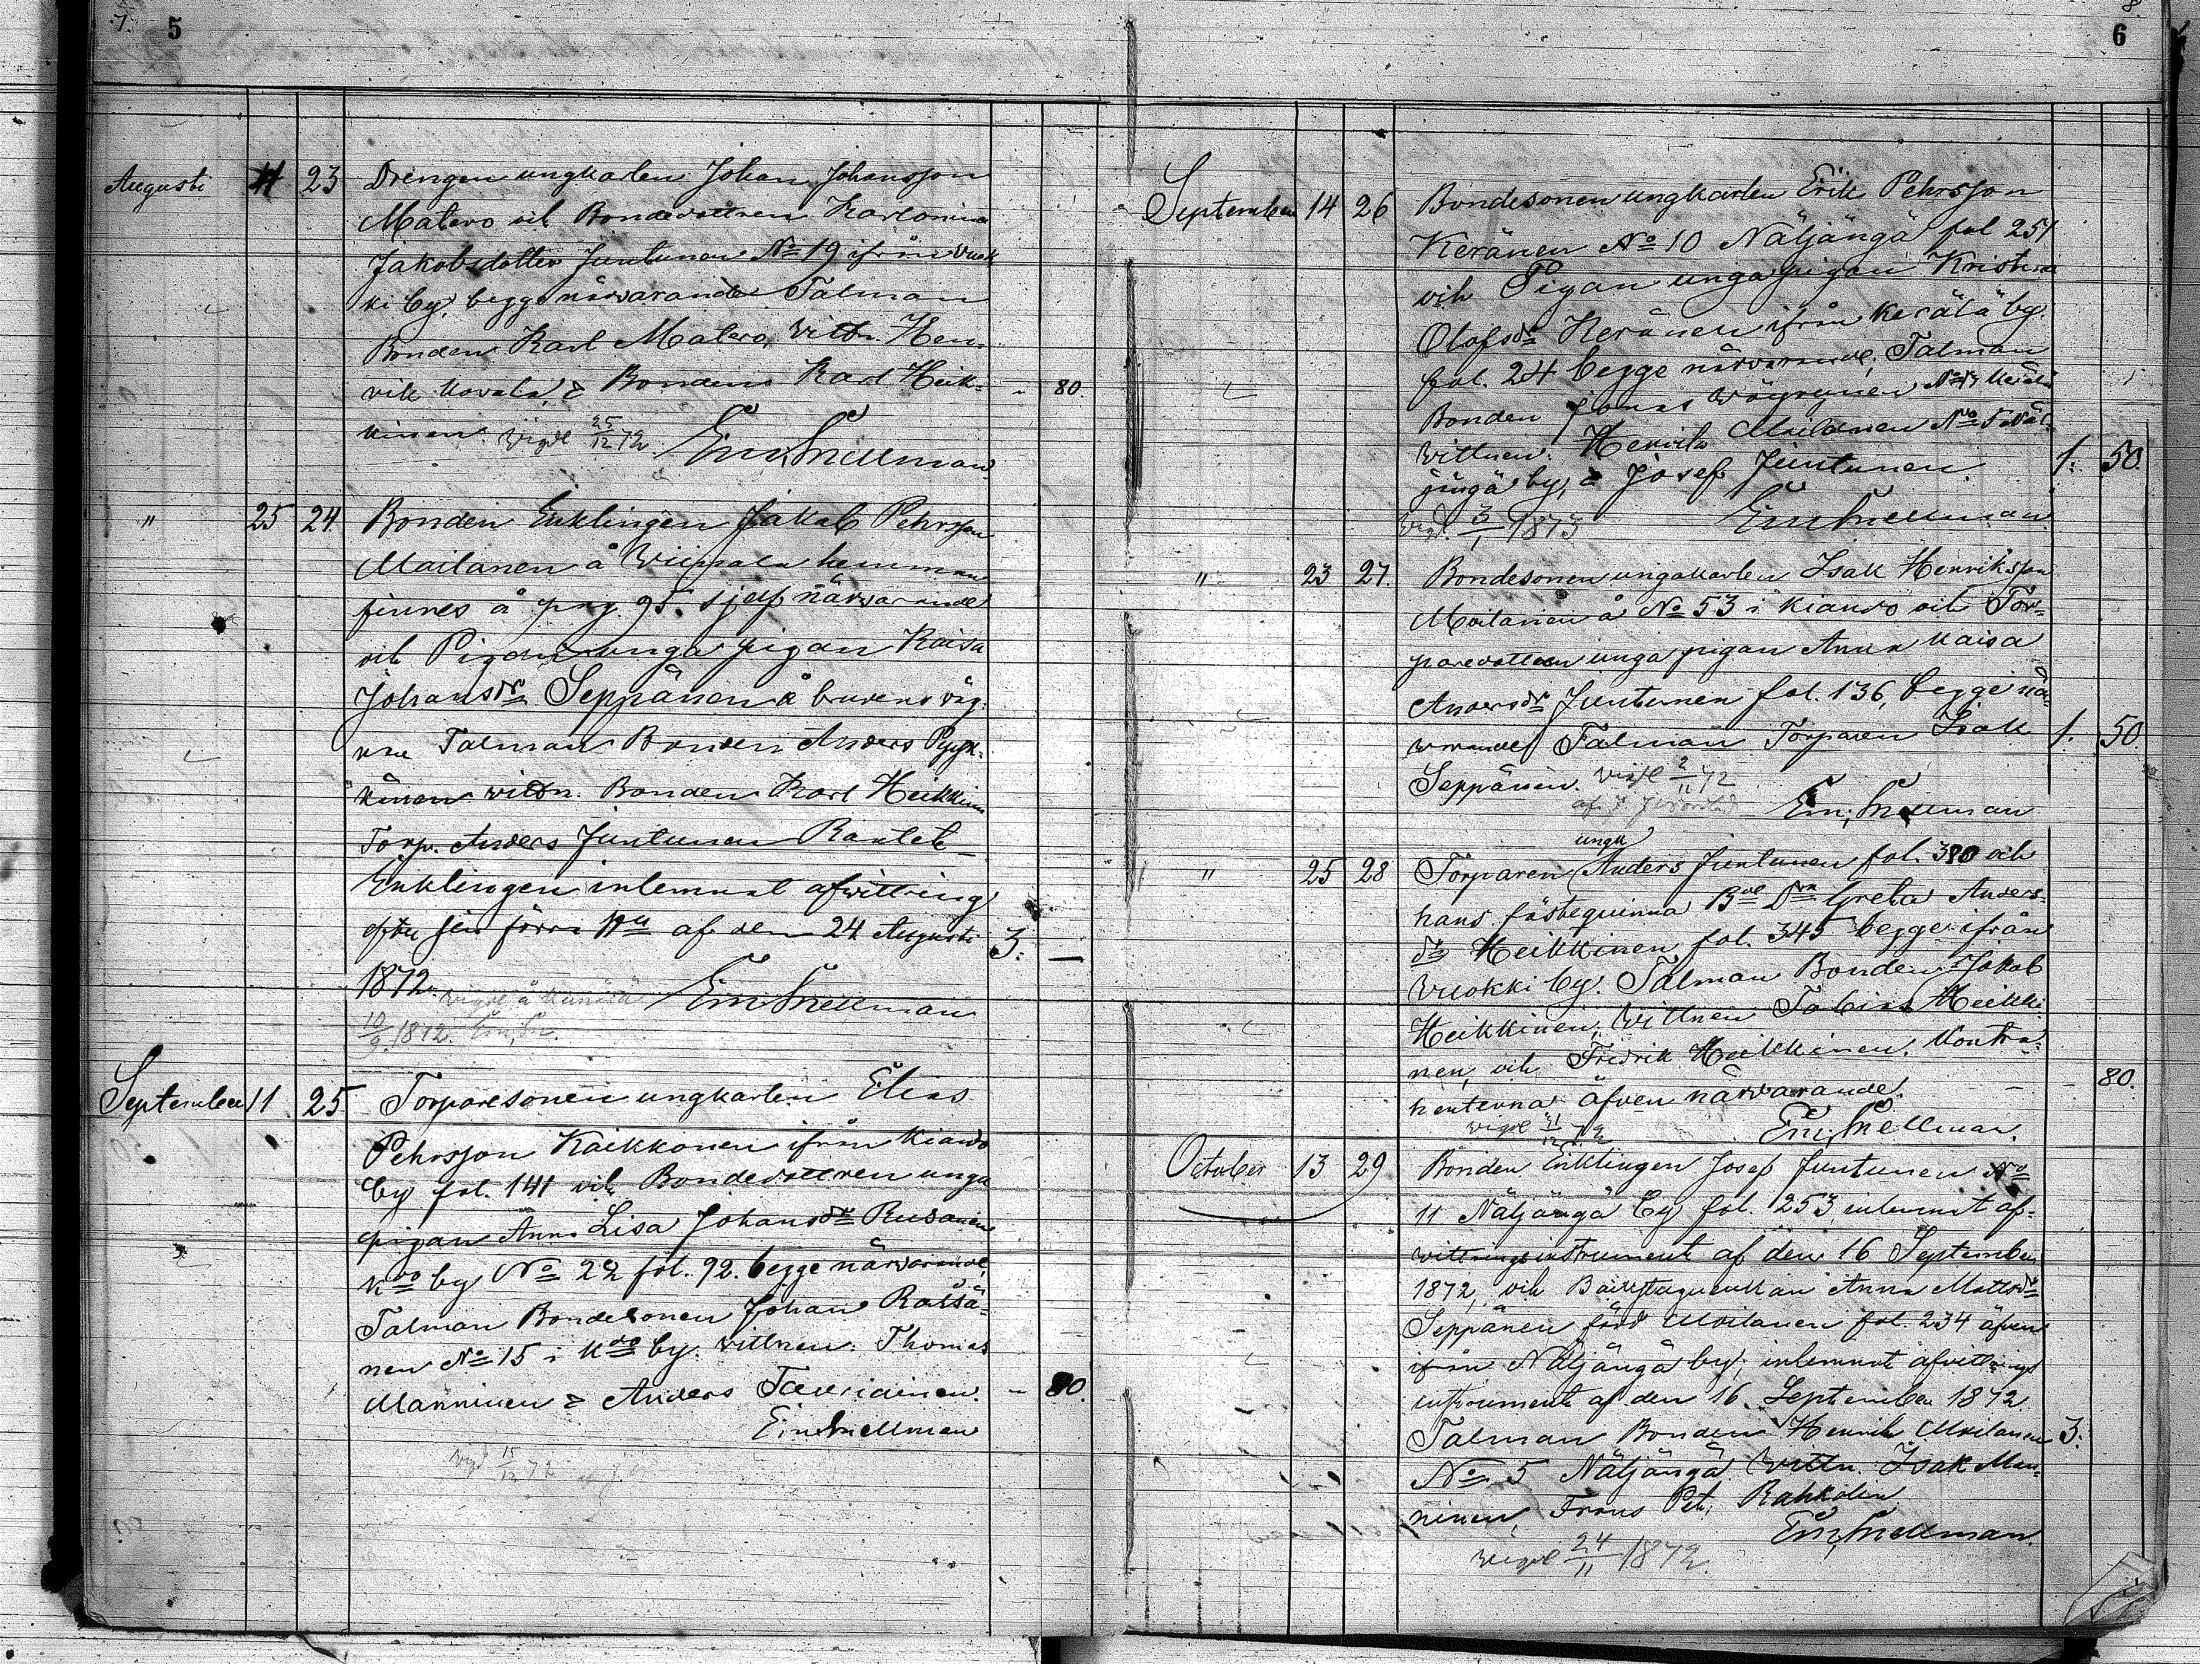 7.
5
Augusti 11 23 Drengen ungkarlen Johan Johansson
Matero och Bondedottren Karolonina
Jakobsdotter Juntunen No 19 ifrån Vuok
ki by, begge närvarande Talman
Bonden Karl Matero, Vittn. Hen
rik Kovala, & Bonden Karl Heik-
kinen. Vigde 25/12 72 - 80.
Em Snellman
" 25 24 Bonden Enklingen Jakob Pehrsson
Moilanen å Viipala hemman
finnes å pag. 95. sjelf närvarande
och Pigan unga pigan Kaisa
Johansdr Seppänen å brudens väg-
nar Talman Bonden Anders Pyyk-
könen vittn. Bonden Karl Heikkinen
Torp. Anders Juntunen
Enklingen inlemnat afvittring
efter sin förra Hu af den 24 Augusti 3: —
1872. Em Snellman
Vigde å
10/9 1872. Em. Sn.
September 11 25 Torparesonen ungkarlen Elias
Pehrsson Kaikkonen ifrån Kiando
by fol. 141 och Bondedottren unga
pigan Anna Lisa Johansdr Rusanen
Kdo by No 22 fol. 92. begge närvarande,
Talman Bondesonen Johan Räisä-
nen No 15 i Kdo by. vittnen: Thomas
Manninen & Anders Tauriainen. - 80.
Em Snellman
Vigd 15/12 72
8.
6
September 14 26 Bondesonen ungkarlen Erik Pehrsson
Keränen No 10 Näljängä fol 251
och Pigan unga pigan Kristina
Olofsdr Keränen ifrån Kerälä by.
fol. 24 begge närvarande; Talman
Bonden Jonas Wäyrynen No 13 Kerälä
Vittnen. Henrik Moilanen No 5 Näl-
jängä by, & Josef Juntunen 1: 50.
Vigd. 3/1 1873 Em Snellman.
" 23 27. Bondesonen ungakarlen Isak Henriksson
Moilanen å No 53 i Kiando och Tor-
paredottren unga pigan Anna Kaisa
Andersdr Juntunen fol. 136, begge när-
warande, Talman Torparen Isak 1. 50
Seppänen. Vigde 2/11 72
Em. Snellman
unga
" 25 28 Torparen Anders Juntunen fol. 380 och
hans fästeqvinna Bde Drn Greta Anders-
dr Heikkinen fol. 345 begge ifrån
Vuokki by. Talman Bonden Jakob
Heikkinen, Vittnen Tobias Heikki-
nen, och Fredrik Heikkinen. Kontra-
henterna äfven närvarande. - - 80.
Vigde 31/12 72 Em. Snellman.
October 13 29 Bonden Enklingen Josef Juntunen No
11 Näljängä by fol. 253, inlemnat af-
wittringsinstrument af den 16 September
1872, och Backstuguenkan Anna Mattsdr
Seppänen född Moilanen fol. 234 äfven
ifrån Näljängä by, inlemnat afvittrings
instrument af den 16 September 1872
Talman Bonden Henrik Moilanen 3:
No 5 Näljängä. Vittn. Isak Man-
ninen, Frans Pet. Rahkolen
Em, Snellman.
Vigde 24/11 1872.